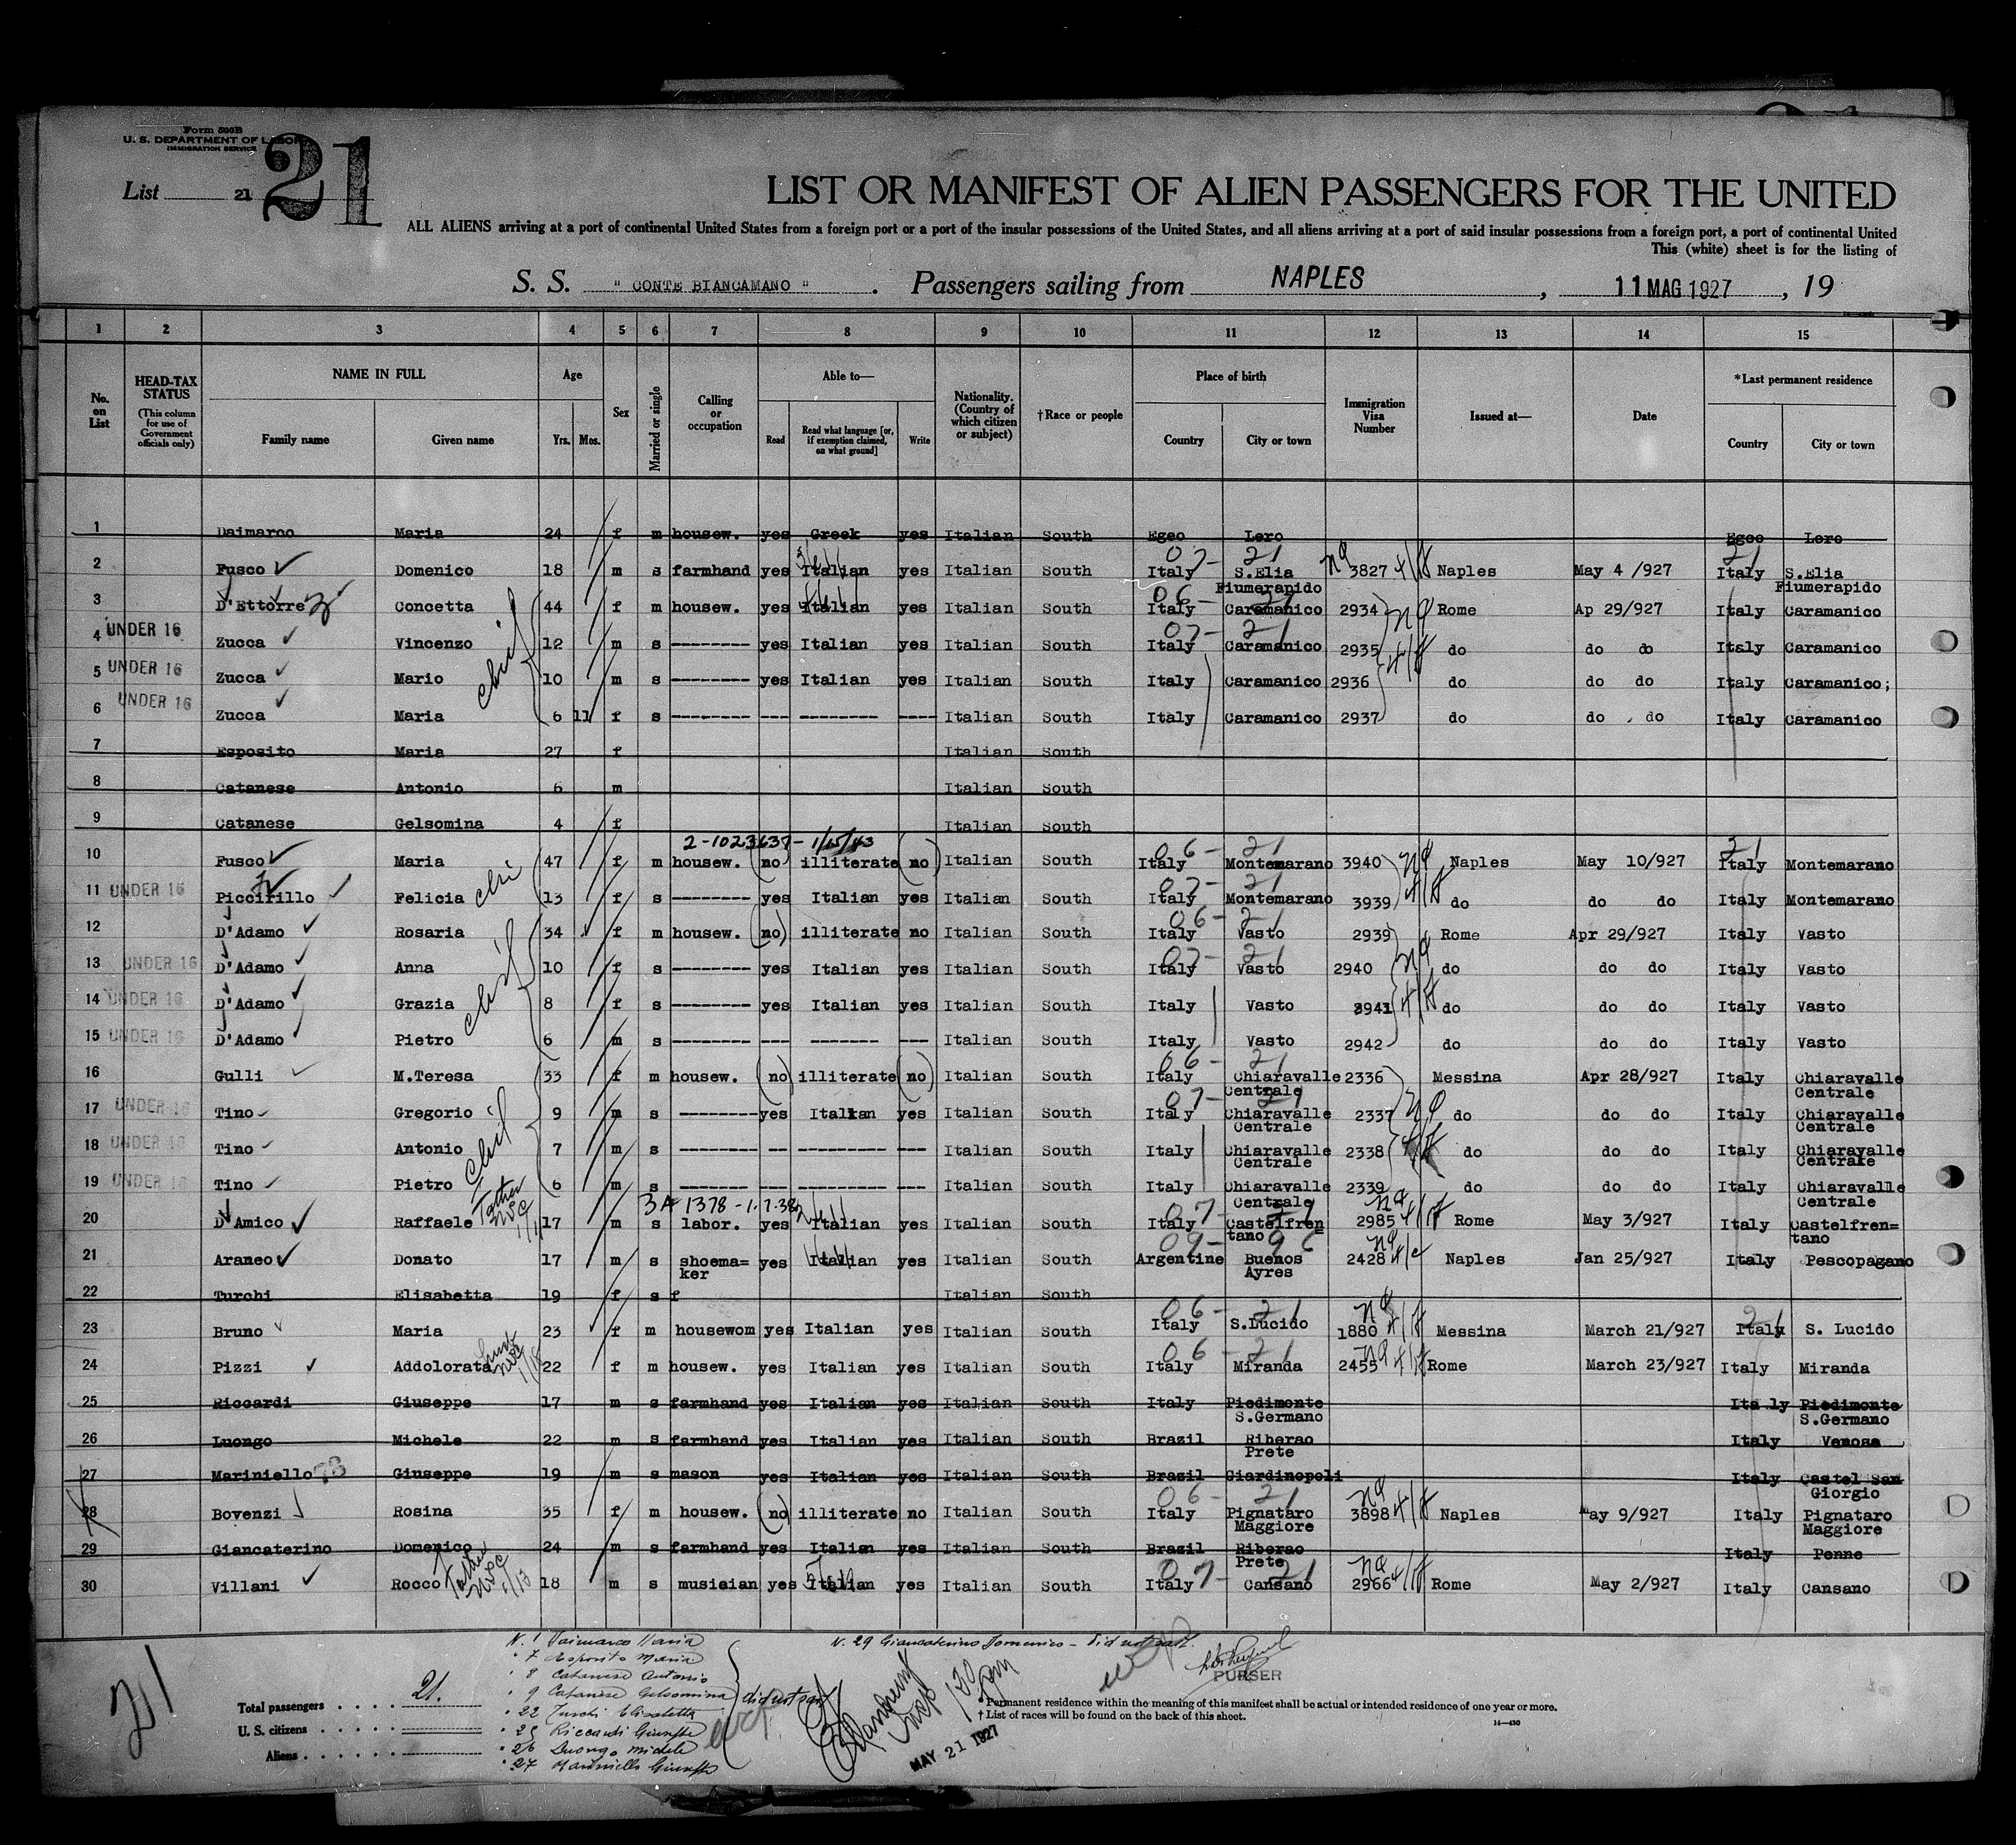 Form 500B
U. S. DEPARTMENT OF LABOR
IMMIGRATION SERVICE
List 21
21
LIST OR MANIFEST OF ALIEN PASSENGERS FOR THE UNITED
ALL ALIENS arriving at a port of continental United States from a foreign port or a port of the insular possessions of the United States, and all aliens arriving at a port of said insular possessions from a foreign port, a port of continental United
This (white) sheet is for the listing of
S. S. " CONTE BIANCAMANO " . Passengers sailing from NAPLES , 11 MAG 1927 , 19
1 2 3 4 5 6 7 8 9 10 11 12 13 14 15
No. on List HEAD-TAX STATUS (This column for use of Government officials only) NAME IN FULL Family name Given name Age Yrs. Mos. Sex Married or single Calling or occupation Able to— Read Read what language [or, if exemption claimed, on what ground] Write Nationality. (Country of which citizen or subject) †Race or people Place of birth Country City or town Immigration Visa Number Issued at— Date *Last permanent residence Country City or town
1 Daimarco Maria 24 f m housew. yes Greek yes Italian South Egeo Lero Egeo Lero
2 Fusco Domenico 18 m s farmhand yes Italian yes Italian South Italy S.Elia Fiumerapido 3827 Naples May 4 /927 Italy S.Elia Fiumerapido
3 D'Ettorre Concetta 44 f m housew. yes Italian yes Italian South Italy Caramanico 2934 Rome Ap 29/927 Italy Caramanico
4 UNDER 16 Zucca Vincenzo 12 m s -------- yes Italian yes Italian South Italy Caramanico 2935 do do do Italy Caramanico
5 UNDER 16 Zucca Mario 10 m s -------- yes Italian yes Italian South Italy Caramanico 2936 do do do Italy Caramanico;
6 UNDER 16 Zucca Maria 6 11 f s -------- --- -------- ---- Italian South Italy Caramanico 2937 do do do Italy Caramanico
7 Esposito Maria 27 f Italian South
8 Catanese Antonio 6 m Italian South
9 Catanese Gelsomina 4 f Italian South
2-1023637- 1/15/43
10 Fusco Maria 47 f m housew. (no) illiterate (no) Italian South Italy Montemarano 3940 Naples May 10/927 Italy Montemarano
11 UNDER 16 Piccirillo Felicia 13 f s -------- yes Italian yes Italian South Italy Montemarano 3939 do do do Italy Montemarano
12 D'Adamo Rosaria 34 f m housew. (no) illiterate no Italian South Italy Vasto 2939 Rome Apr 29/927 Italy Vasto
13 UNDER 16 D'Adamo Anna 10 f s -------- yes Italian yes Italian South Italy Vasto 2940 do do do Italy Vasto
14 UNDER 16 D'Adamo Grazia 8 f s -------- yes Italian yes Italian South Italy Vasto 2941 do do do Italy Vasto
15 UNDER 16 D'Adamo Pietro 6 m s -------- --- ------- --- Italian South Italy Vasto 2942 do do do Italy Vasto
16 Gulli M.Teresa 33 f m housew. (no) illiterate (no) Italian South Italy Chiaravalle Centrale 2336 Messina Apr 28/927 Italy Chiaravalle Centrale
17 UNDER 16 Tino Gregorio 9 m s -------- yes Italian yes Italian South Italy Chiaravalle Centrale 2337 do do do Italy Chiaravalle Centrale
18 UNDER 16 Tino Antonio 7 m s -------- --- --------- --- Italian South Italy Chiaravalle Centrale 2338 do do do Italy Chiaravalle Centrale
19 UNDER 16 Tino Pietro 6 m s -------- --- --------- --- Italian South Italy Chiaravalle Centrale 2339 do do do Italy Chiaravalle Centrale
20 D'Amico Raffaele 17 m s labor. yes Italian yes Italian South Italy Castelfren= tano 2985 Rome May 3/927 Italy Castelfren= tano
21 Araneo Donato 17 m s shoema= ker yes Italian yes Italian South Argentine Buenos Ayres 2428 Naples Jan 25/927 Italy Pescopagano
22 Turchi Elisabetta 19 f s f Italian South
23 Bruno Maria 23 f m housewom yes Italian yes Italian South Italy S.Lucido 1880 Messina March 21/927 Italy S. Lucido
24 Pizzi Addolorata 22 f m housew. yes Italian yes Italian South Italy Miranda 2455 Rome March 23/927 Italy Miranda
25 Riccardi Giuseppe 17 m s farmhand yes Italian yes Italian South Italy Piedimonte S.Germano Ita ly Piedimonte S.Germano
26 Luongo Michele 22 m s farmhand yes Italian yes Italian South Brazil Riberao Prete Italy Venosa
27 Mariniello Giuseppe 19 m s mason yes Italian yes Italian South Brazil Giardinopoli Italy Castel San Giorgio
28 Bovenzi Rosina 35 f m housew. (no) illiterate no Italian South Italy Pignataro Maggiore 3898 Naples May 9/927 Italy Pignataro Maggiore
29 Giancaterino Domenico 24 m s farmhand yes Italian yes Italian South Brazil Riberao Prete Italy Penne
30 Villani Rocco 18 m s musician yes Italian yes Italian South Italy Cansano 2966 Rome May 2/927 Italy Cansano
N. 1 Daimarco Maria
" 7 Esposito Maria
" 8 Catanese Antonio
" 9 Catanese Gelsomina
" 22 Turchi Elisabetta
" 25 Riccardi Giuseppe
" 26 Luongo Michele
" 27 Mariniello Giuseppe
did not sail
N. 29 Giancaterino Domenico - did not sail.
PURSER
21
Total passengers . . . . 21.
U. S. citizens . . . . . .
Aliens . . . . . . .
MAY 21 1927
*Permanent residence within the meaning of this manifest shall be actual or intended residence of one year or more.
† List of races will be found on the back of this sheet.
14—430